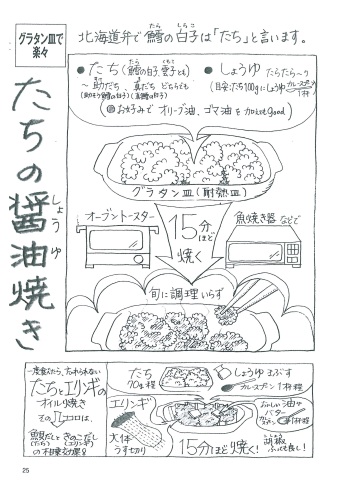 グラタン皿で
楽々
たちの醤油焼き
しょうゆ
北海道弁で鱈の白子は「たち」と言います。
たら
しらこ
●たち(鱈の白子、雲子とも)
たら
くもこ
~助だち、真だち どちらも
(助のもう白子) (真鱈の白子)
●しょうゆ たらたら~っ
(目安:たち100gにしょうゆカレースプーン1杯)
(お好みで オリーブ油、ゴマ油 を加えてもgood)
グラタン皿(耐熱皿)
オーブントースター
15分
ほど
焼く
魚焼き器などで
旬に調理いらず
一度食べたら、忘れられない
たちとエリンギの
オイル焼き
そのココロは、
魚貝だしときのこだし
(たち) (エリンギ)
の相乗効果!!
たち
70g程
しょうゆ まぶす
カレースプーン1杯程
エリンギ
大体
うす切り
おいしい油や
バター
15分ほど焼く!
胡椒
ふっても良し!
25